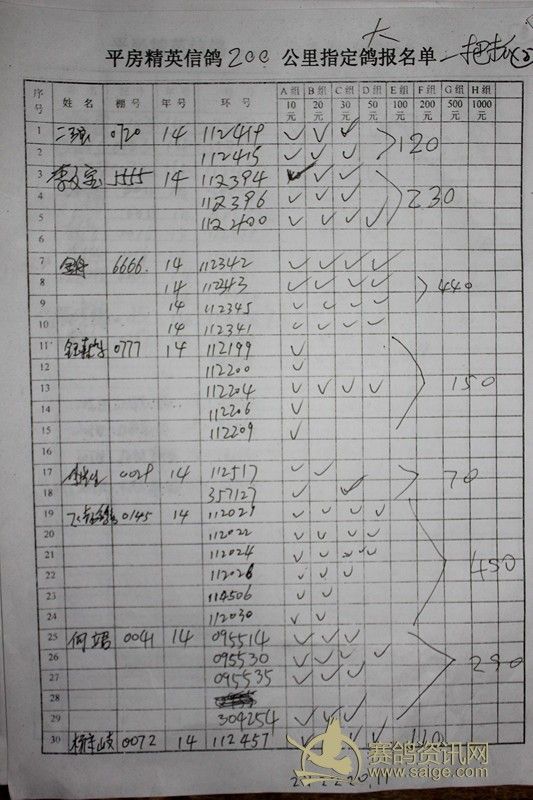 大
平房精英信鸽200公里指定鸽报名单
序号 姓名 棚号 年号 环号 A组10元 B组20元 C组30元 D组50元 E组100元 F组200元 G组500元 H组1000元
1 0720 14 112419 ✓ ✓ ✓ 120
2 112415 ✓ ✓ ✓
3 5555 14 112394 ✓ ✓ ✓ 230
4 112396 ✓ ✓ ✓
5 112400 ✓ ✓ ✓ ✓
6
7 6666. 14 112342 ✓ ✓ ✓ ✓ 440
8 14 112343 ✓ ✓ ✓ ✓
9 14 112345 ✓ ✓ ✓ ✓
10 14 112341 ✓ ✓ ✓ ✓
11 0777 14 112199 ✓ 150
12 112200 ✓
13 112204 ✓ ✓ ✓ ✓
14 112206 ✓
15 112209 ✓
16
17 0029 14 112517 ✓ ✓ 70
18 357127 ✓ ✓
19 0145 14 112029 ✓ ✓ ✓ ✓ 450
20 112022 ✓ ✓ ✓ ✓
21 112024 ✓ ✓ ✓ ✓
22 112026 ✓ ✓ ✓
23 114506 ✓ ✓
24 112030 ✓ ✓
25 何 0041 14 095514 ✓ ✓ ✓ 290
26 095530 ✓ ✓ ✓ ✓
27 095535 ✓ ✓ ✓
28
29 304254 ✓ ✓ ✓
30 杨 0072 14 112457 ✓ ✓ ✓ ✓ 110
赛鸽资讯网
www.saige.com